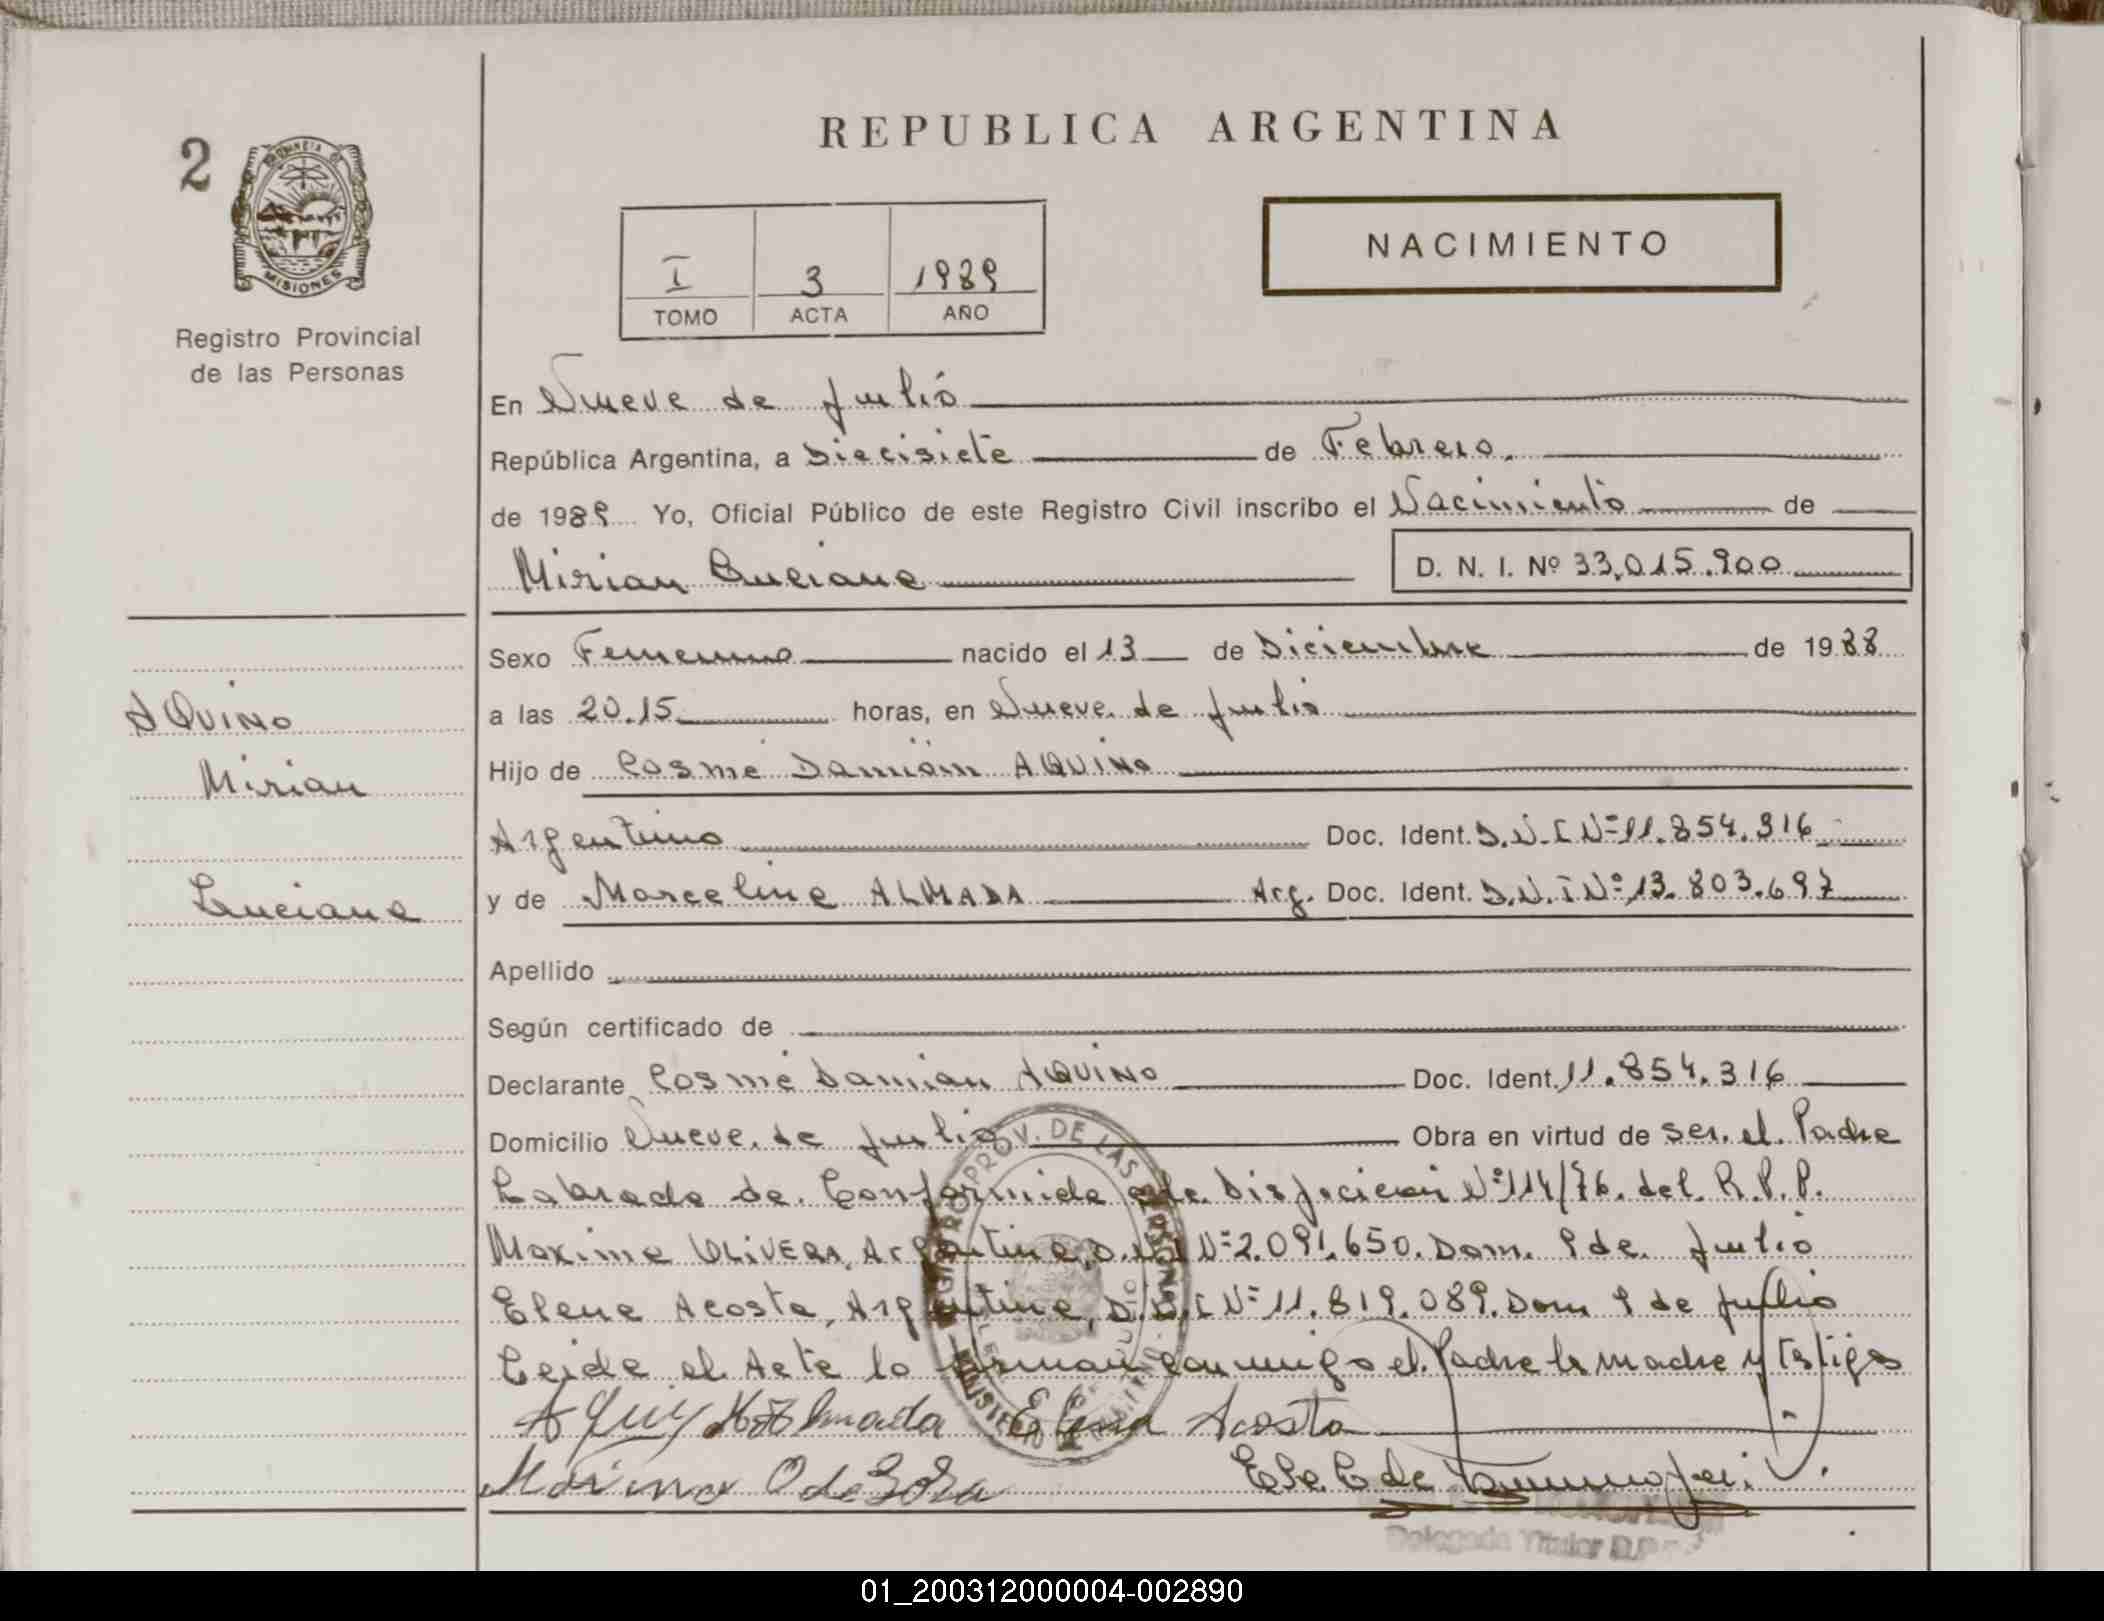 REPUBLICA ARGENTINA
2
PROVINCIA DE
MISIONES
Registro Provincial
de las Personas
I 3 1989
TOMO ACTA AÑO
NACIMIENTO
En Nueve de Julio
República Argentina, a Diecisiete de Febrero.
de 1989 Yo, Oficial Público de este Registro Civil inscribo el Nacimiento de
Mirian Luciana D. N. I. Nº 33.015.900
Sexo Femenino nacido el 13 de Diciembre de 1988
AQUINO
Mirian
Luciana
a las 20.15 horas, en Nueve de Julio
Hijo de Cosme Damián AQUINO
Argentino Doc. Ident. D.N.I Nº 11.854.316
y de Marcelina ALMADA Arg. Doc. Ident. D.N.I Nº 13.803.697
Apellido
Según certificado de
Declarante Cosme Damian AQUINO Doc. Ident. 11.854.316
Domicilio Nueve de Julio Obra en virtud de ser el Padre
Labrada de Conformida a la Disposicion Nº 114/76 del R.P.P.
Maxima OLIVERA, Argentina, D.N.I Nº 2.091.650. Dom. 9 de Julio
Elena Acosta, Argentina, D.N.I Nº 11.819.089. Dom 9 de Julio
Leida el Acta lo firman conmigo el Padre la madre y Testigos
Almada Elena Acosta
Delegada Titular
01_200312000004-002890